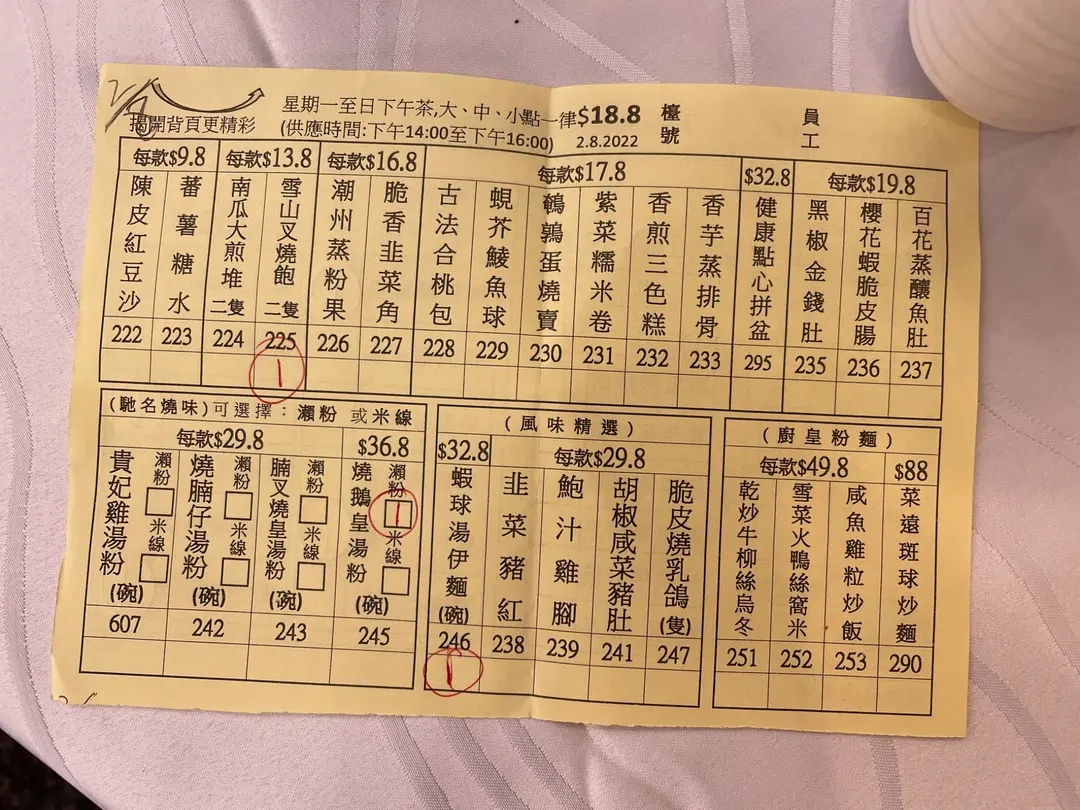 揭開背頁更精彩
星期一至日下午茶,大、中、小點一律$18.8
(供應時間:下午14:00至下午16:00)
2.8.2022
檯號
員工
每款$9.8
陳皮紅豆沙
222
蕃薯糖水
223
每款$13.8
南瓜大煎堆 二隻
224
雪山叉燒飽 二隻
225
1
每款$16.8
潮州蒸粉果
226
脆香韭菜角
227
每款$17.8
古法合桃包
228
蜆芥鯪魚球
229
鵪鶉蛋燒賣
230
紫菜糯米卷
231
香煎三色糕
232
香芋蒸排骨
233
$32.8
健康點心拼盆
295
每款$19.8
黑椒金錢肚
235
櫻花蝦脆皮腸
236
百花蒸釀魚肚
237
(馳名燒味)可選擇: 瀨粉 或米線
每款$29.8
貴妃雞湯粉(碗)
瀨粉
米線
607
燒腩仔湯粉(碗)
瀨粉
米線
242
腩叉燒皇湯粉(碗)
瀨粉
米線
243
$36.8
燒鵝皇湯粉(碗)
瀨粉
1
米線
245
(風味精選)
$32.8
蝦球湯伊麵(碗)
246
1
每款$29.8
韭菜豬紅
238
鮑汁雞腳
239
胡椒咸菜豬肚
241
脆皮燒乳鴿(隻)
247
(廚皇粉麵)
每款$49.8
乾炒牛柳絲烏冬
251
雪菜火鴨絲窩米
252
咸魚雞粒炒飯
253
$88
菜遠斑球炒麵
290